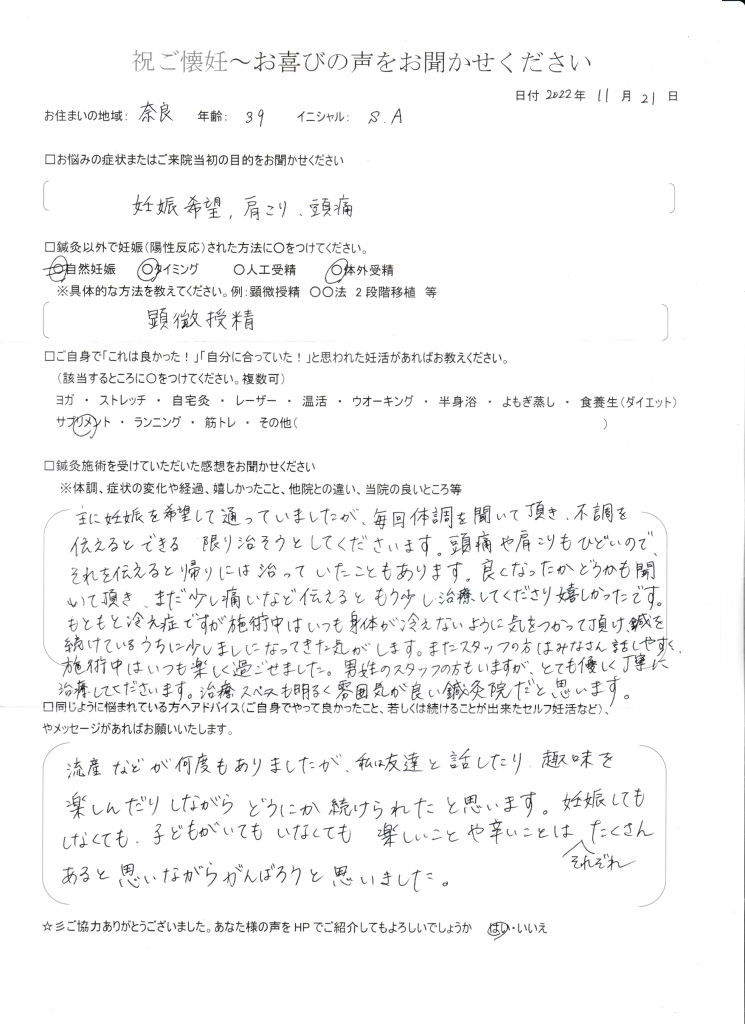 祝ご懐妊～お喜びの声をお聞かせください
日付 2022年 11 月 21 日
お住まいの地域: 奈良 年齢: 39 イニシャル: S.A
□お悩みの症状またはご来院当初の目的をお聞かせください
妊娠希望, 肩こり、頭痛
□鍼灸以外で妊娠(陽性反応)された方法に○をつけてください。
○自然妊娠 ○タイミング ○人工受精 ○体外受精
※具体的な方法を教えてください。例:顕微授精 ○○法 2段階移植 等
顕微授精
□ご自身で「これは良かった!」「自分に合っていた!」と思われた妊活があればお教えください。
(該当するところに○をつけてください。複数可)
ヨガ ・ ストレッチ ・ 自宅灸 ・ レーザー ・ 温活 ・ ウオーキング ・ 半身浴 ・ よもぎ蒸し ・ 食養生(ダイエット)
サプリメント ・ ランニング ・ 筋トレ ・ その他( )
□鍼灸施術を受けていただいた感想をお聞かせください
※体調、症状の変化や経過、嬉しかったこと、他院との違い、当院の良いところ等
主に妊娠を希望して通っていましたが、毎回体調を聞いて頂き、不調を
伝えるとできる 限り治そうとしてくださいます。頭痛や肩こりもひどいので、
それを伝えると帰りには治って いたこともあります。良くなったかどうかも聞
いて頂き、まだ少し痛いなど伝えると もう少し治療してくださり嬉しかったです。
もともと冷え症ですが施術中はいつも身体が冷えないように気をつかって頂け、鍼を
続けているうちに少しましになってきた気がします。またスタッフの方はみなさん話しやすく、
施術中はいつも楽しく過ごせました。男性のスタッフの方もいますが、とても優しく丁寧に
治療してくださいます。治療スペースも明るく雰囲気が良い鍼灸院だと思います。
□同じように悩まれている方へアドバイス(ご自身でやって良かったこと、若しくは続けることが出来たセルフ妊活など)、
やメッセージがあればお願いいたします。
流産などが何度もありましたが、私は友達と話したり、趣味を
楽しんだりしながら どうにか続けられたと思います。妊娠しても
しなくても、子どもがいても いなくても 楽しいことや辛いことは たくさん
それぞれ
あると思いながらがんばろうと思いました。
☆彡ご協力ありがとうございました。あなた様の声をHPでご紹介してもよろしいでしょうか はい・いいえ